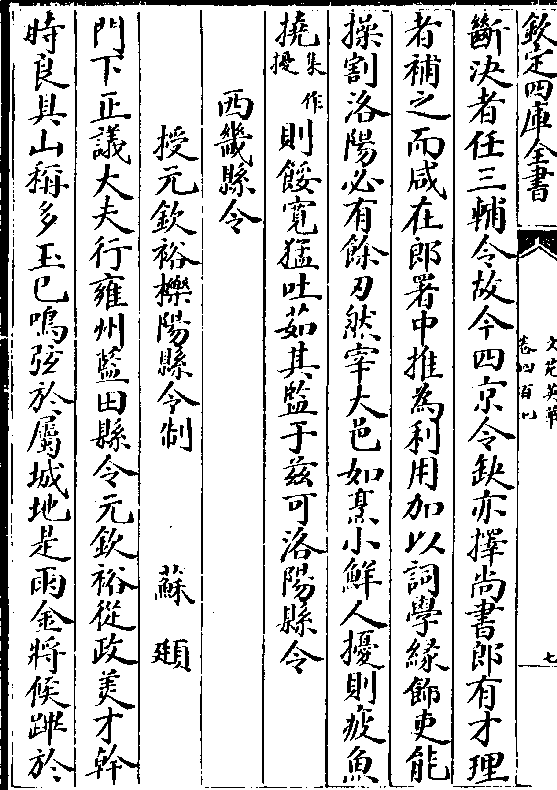 欽定四庫全書
文苑英華
卷四百八
七
斷決者任三輔令故今四京令缺亦擇尚書郎有才理
者補之而咸在郎署中推為利用加以詞學緣飾吏能
操割洛陽必有餘刃然宰大邑如烹小鮮人擾則疲魚
撓集作擾則餒寛猛吐茹其監于兹可洛陽縣令
西畿縣令
授元欽裕櫟陽縣令制 蘇頲
門下正議大夫行雍州藍田縣令元欽裕從政美才幹
時良具山稱多玉已鳴弦於屬城地是雨金將候蹕於